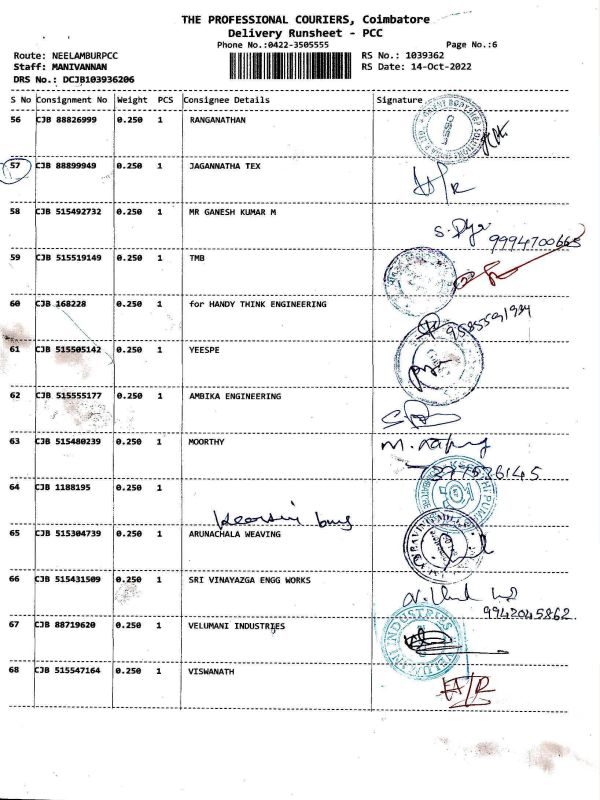 THE PROFESSIONAL COURIERS, Coimbatore
Delivery Runsheet - PCC
Phone No.:0422-3505555 Page No.:6
Route: NEELAMBURPCC RS No.: 1039362
Staff: MANIVANNAN RS Date: 14-Oct-2022
DRS No.: DCJB103936206
S No Consignment No Weight PCS Consignee Details Signature
56 CJB 88826999 0.250 1 RANGANATHAN
57 CJB 88899949 0.250 1 JAGANNATHA TEX
58 CJB 515492732 0.250 1 MR GANESH KUMAR M
9994700665
59 CJB 515519149 0.250 1 TMB
60 CJB 168228 0.250 1 for HANDY THINK ENGINEERING
61 CJB 515505142 0.250 1 YEESPE
62 CJB 515555177 0.250 1 AMBIKA ENGINEERING
63 CJB 515480239 0.250 1 MOORTHY
64 CJB 1188195 0.250 1
65 CJB 515304739 0.250 1 ARUNACHALA WEAVING
66 CJB 515431509 0.250 1 SRI VINAYAZGA ENGG WORKS
9942045862
67 CJB 88719620 0.250 1 VELUMANI INDUSTRIES
68 CJB 515547164 0.250 1 VISWANATH